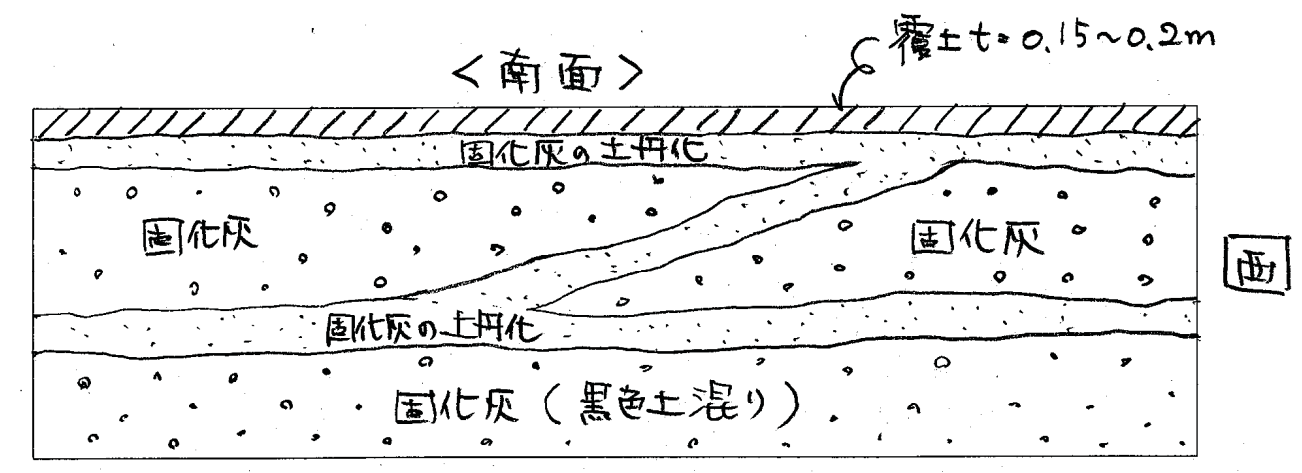 覆土t=0.15~0.2m
<南面>
固化灰の土丹化
固化灰
固化灰
西
固化灰の土丹化
固化灰(黒色土混り)